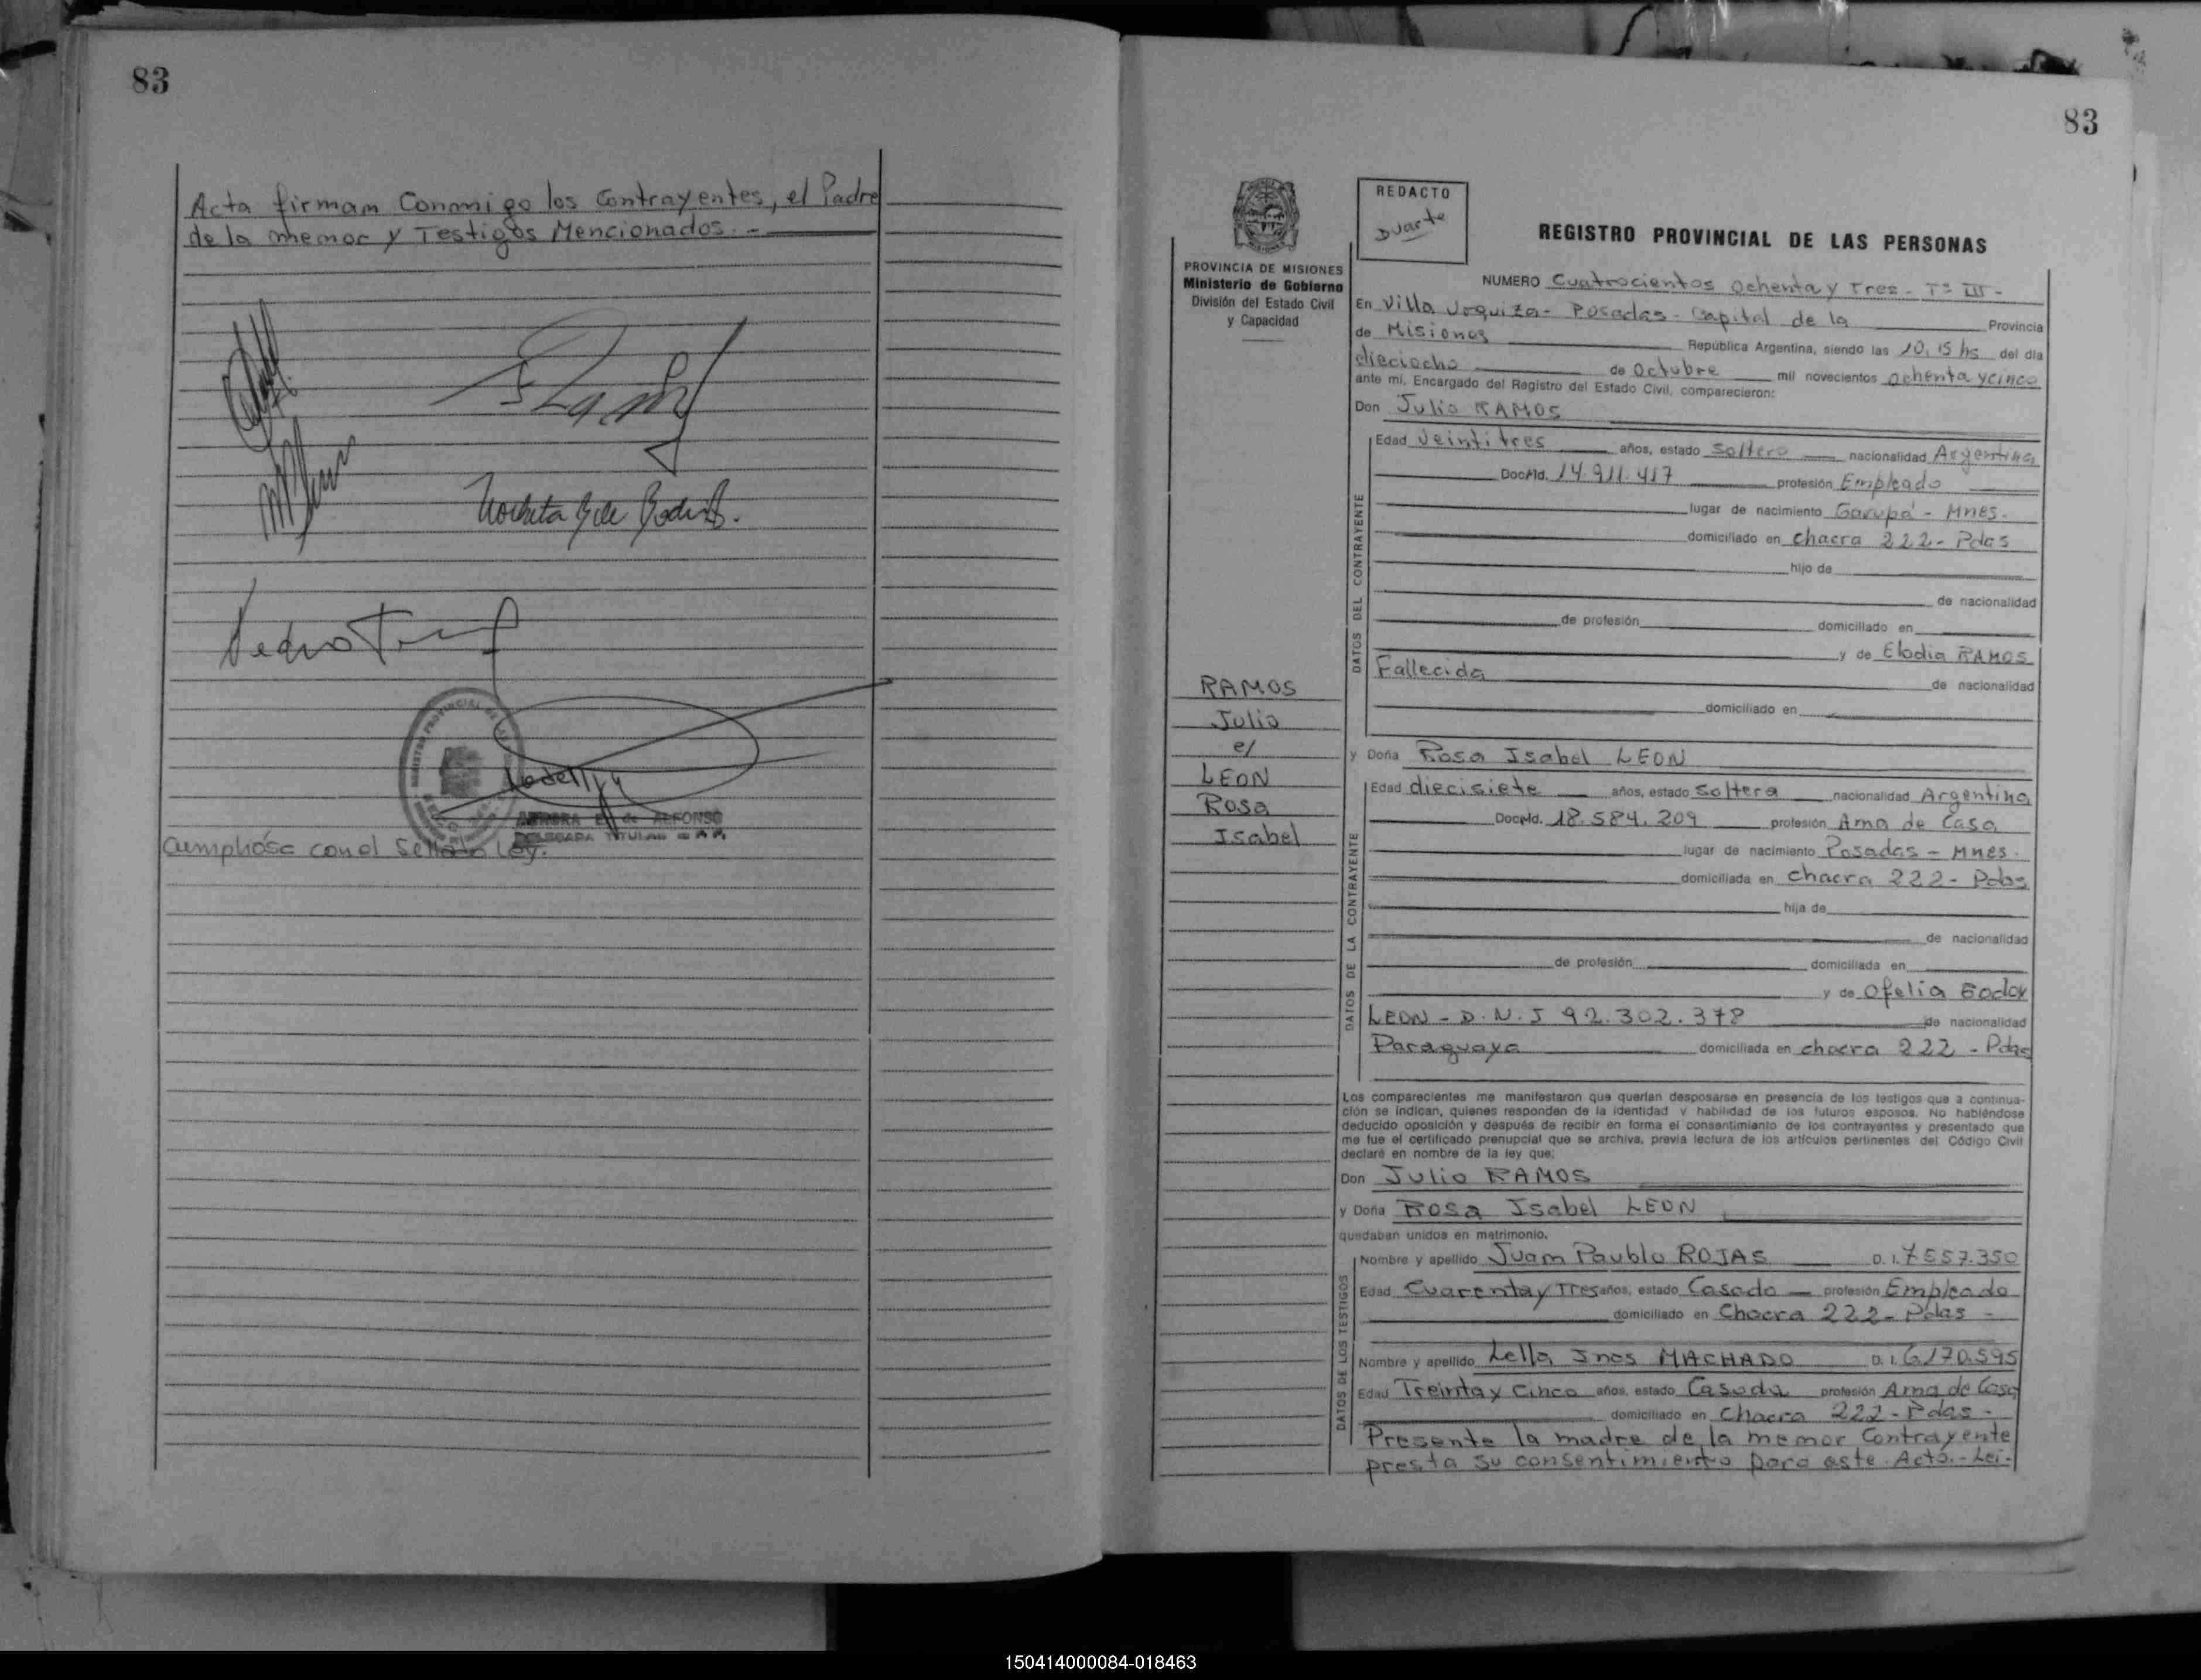 83
Acta firmam Conmigo los Contrayentes, el Padre
de la menor y Testigos Mencionados.-
Pedro
AURORA E. de ALFONSO
DELEGADA TITULAR
Cumplióse con el Sellado Ley.
83
REDACTO
Duarte
PROVINCIA DE MISIONES
Ministerio de Gobierno
División del Estado Civil
y Capacidad
REGISTRO PROVINCIAL DE LAS PERSONAS
NUMERO Cuatrocientos Ochenta y Tres - Tº III -
En Villa Urquiza - Posadas - Capital de la Provincia
de Misiones República Argentina, siendo las 10,15 hs del día
dieciocho de Octubre mil novecientos ochenta y cinco
ante mí, Encargado del Registro del Estado Civil, comparecieron:
Don Julio RAMOS
DATOS DEL CONTRAYENTE
Edad Veintitres años, estado Soltero nacionalidad Argentina
Doc. Id. 14.911.417 profesión Empleado
lugar de nacimiento Garupá - Mnes.
domiciliado en chacra 222 - Pdas
hijo de
de nacionalidad
de profesión domiciliado en
y de Elodia RAMOS
Fallecida de nacionalidad
domiciliado en
RAMOS
Julio
c/
LEON
Rosa
Isabel
y Doña Rosa Isabel LEON
DATOS DE LA CONTRAYENTE
Edad diecisiete años, estado Soltera nacionalidad Argentina
Doc. Id. 18.584.209 profesión Ama de Casa
lugar de nacimiento Posadas - Mnes.
domiciliada en chacra 222 - Pdas
hija de
de nacionalidad
de profesión domiciliada en
y de Ofelia Godoy
LEON - D.N.I 92.302.378 de nacionalidad
Paraguaya domiciliada en chacra 222 - Pdas
Los comparecientes me manifestaron que querían desposarse en presencia de los testigos que a continua-
ción se indican, quienes responden de la identidad y habilidad de los futuros esposos. No habiéndose
deducido oposición y después de recibir en forma el consentimiento de los contrayentes y presentado que
me fue el certificado prenupcial que se archiva, previa lectura de los artículos pertinentes del Código Civil
declaré en nombre de la ley que:
Don Julio RAMOS
y Doña Rosa Isabel LEON
quedaban unidos en matrimonio.
DATOS DE LOS TESTIGOS
Nombre y apellido Juam Paublo ROJAS D. I. 7557.350
Edad Cuarenta y Tres años, estado Casado profesión Empleado
domiciliado en Chacra 222 - Pdas -
Nombre y apellido Lella Ines MACHADO D. I. 6.170.595
Edad Treinta y Cinco años, estado Casada profesión Ama de Casa
domiciliado en Chacra 222 - Pdas -
Presente la madre de la menor Contrayente
presta su consentimiento para este Acto.- Lei-
150414000084-018463